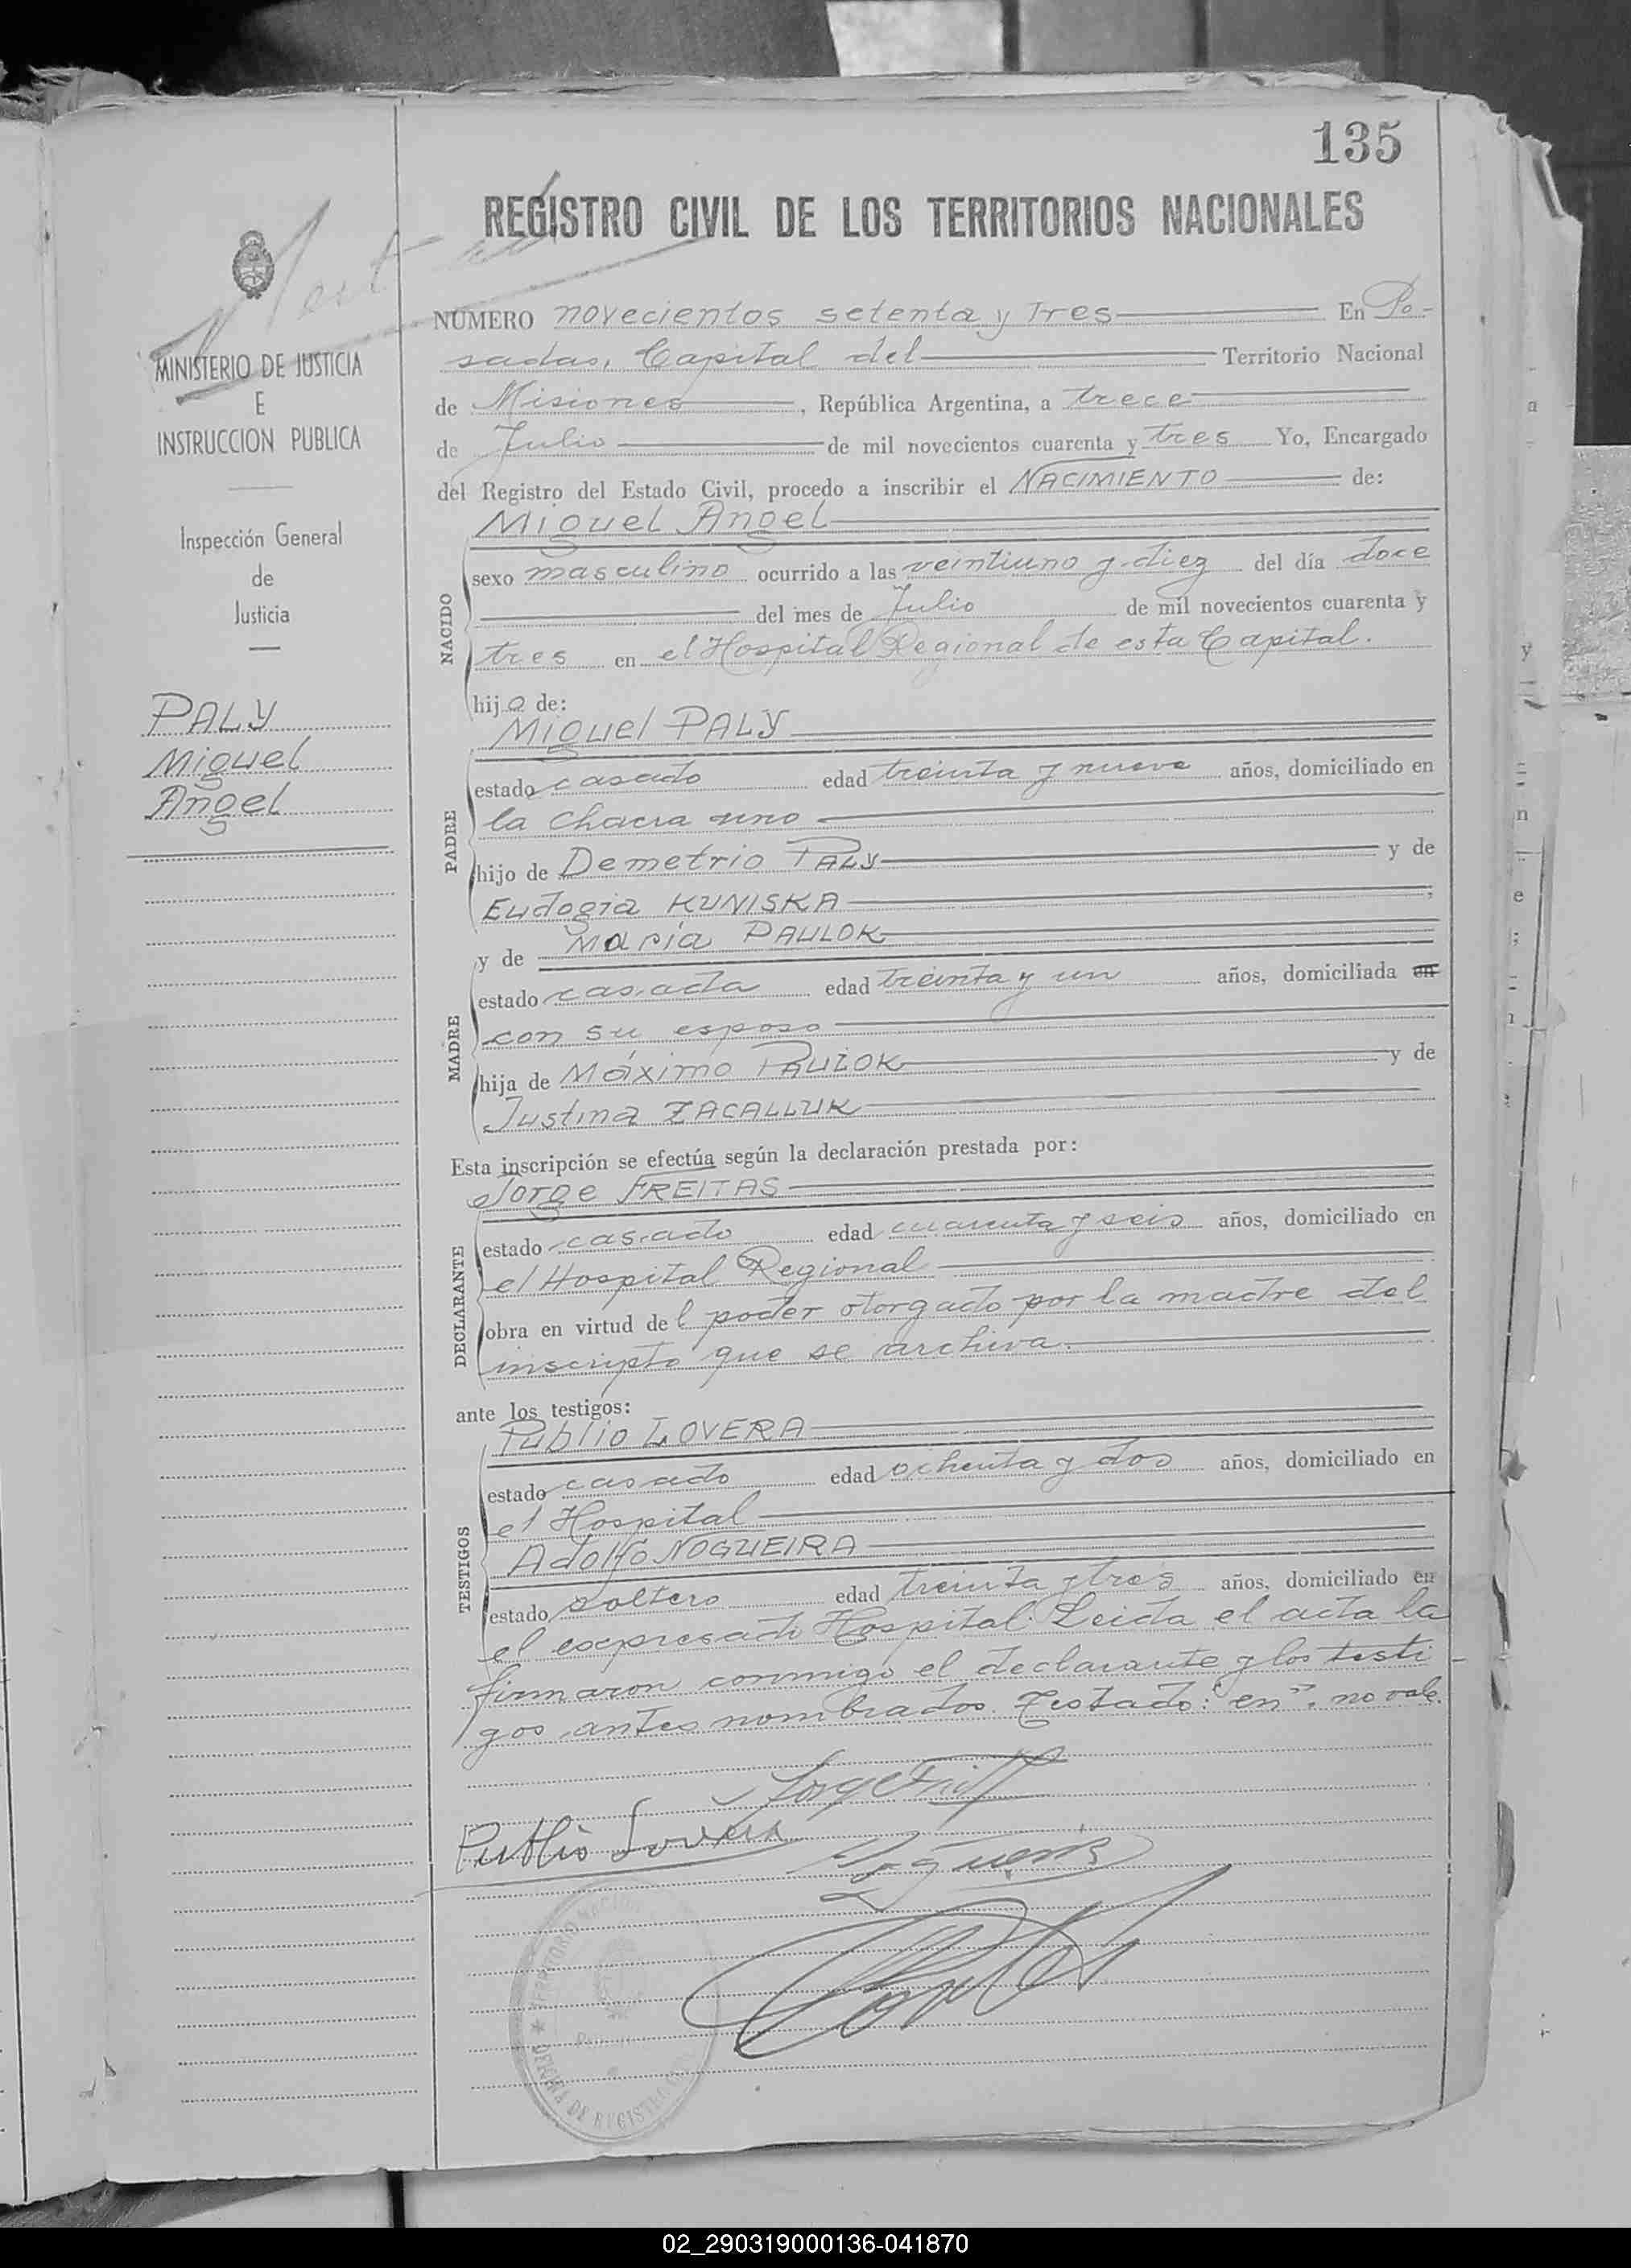 135
REGISTRO CIVIL DE LOS TERRITORIOS NACIONALES
MINISTERIO DE JUSTICIA
E
INSTRUCCION PUBLICA
Inspección General
de
Justicia
PALY
Miguel
Angel
NÚMERO novecientos setenta y Tres En Po-
sadas, Capital del Territorio Nacional
de Misiones, República Argentina, a trece
de Julio de mil novecientos cuarenta y tres Yo, Encargado
del Registro del Estado Civil, procedo a inscribir el NACIMIENTO de:
NACIDO
Miguel Angel
sexo masculino ocurrido a las veintiuno y diez del día doce
del mes de Julio de mil novecientos cuarenta y
tres en el Hospital Regional de esta Capital.
hijo de:
PADRE
Miguel PALY
estado casado edad treinta y nueve años, domiciliado en
la chacra uno
hijo de Demetrio PALY y de
Eudogia KUNISKA ;
MADRE
y de María PAULOK
estado casada edad treinta y un años, domiciliada en
con su esposo
hija de Máximo PAULOK y de
Justina ZACALLUK
Esta inscripción se efectúa según la declaración prestada por:
DECLARANTE
Jorge FREITAS
estado casado edad cuarenta y seis años, domiciliado en
el Hospital Regional
obra en virtud del poder otorgado por la madre del
inscripto que se archiva.
ante los testigos:
TESTIGOS
Publio LOVERA
estado casado edad ochenta y dos años, domiciliado en
el Hospital
Adolfo NOGUEIRA
estado soltero edad treinta y tres años, domiciliado en
el expresado Hospital. Leida el acta la
firmaron conmigo el declarante y los testi-
gos antes nombrados. Testado: "en". no vale.
Publio Lovera
TERRITORIO NACIONAL
OFICINA DE REGISTRO
02_290319000136-041870